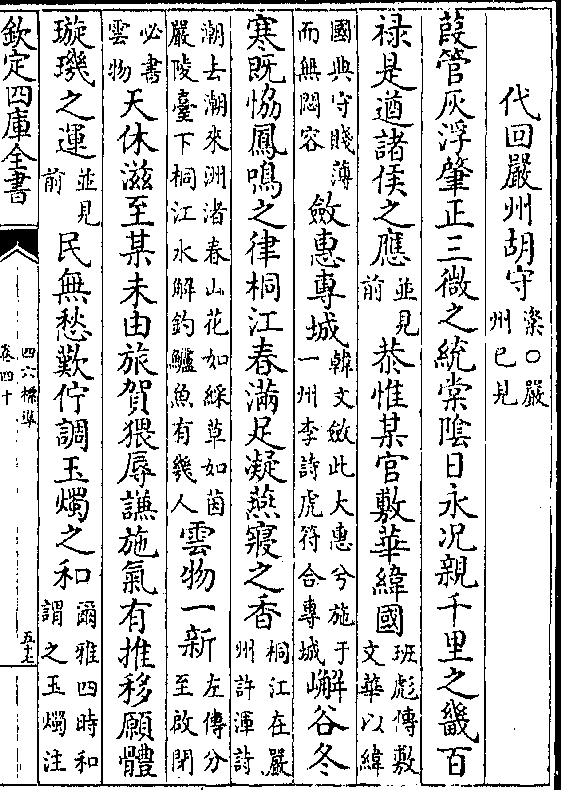 代回嚴州胡守○嚴州已見
葭管灰浮肇正三微之統棠陰日永况親千里之畿百
禄是遒諸侯之應並見前恭惟某官敷華緯國班彪傳敷文華以緯
國典守賤薄而無悶容斂惠專城韓文斂此大惠兮施于一州李詩虎符合專城嶰谷冬
寒既恊鳳鳴之律桐江春滿足凝燕寢之香桐江在嚴州許渾詩
潮去潮來洲渚春山花如綵草如茵嚴陵臺下桐江水解釣鱸魚有幾人雲物一新左傳分至啟閉
必書雲物天休滋至某未由旅賀猥辱謙施氣有推移願體
璇璣之運並見前民無愁歎佇調玉燭之和爾雅四時和謂之玉燭注
欽定四庫全書
四六標準
卷四十
五十七